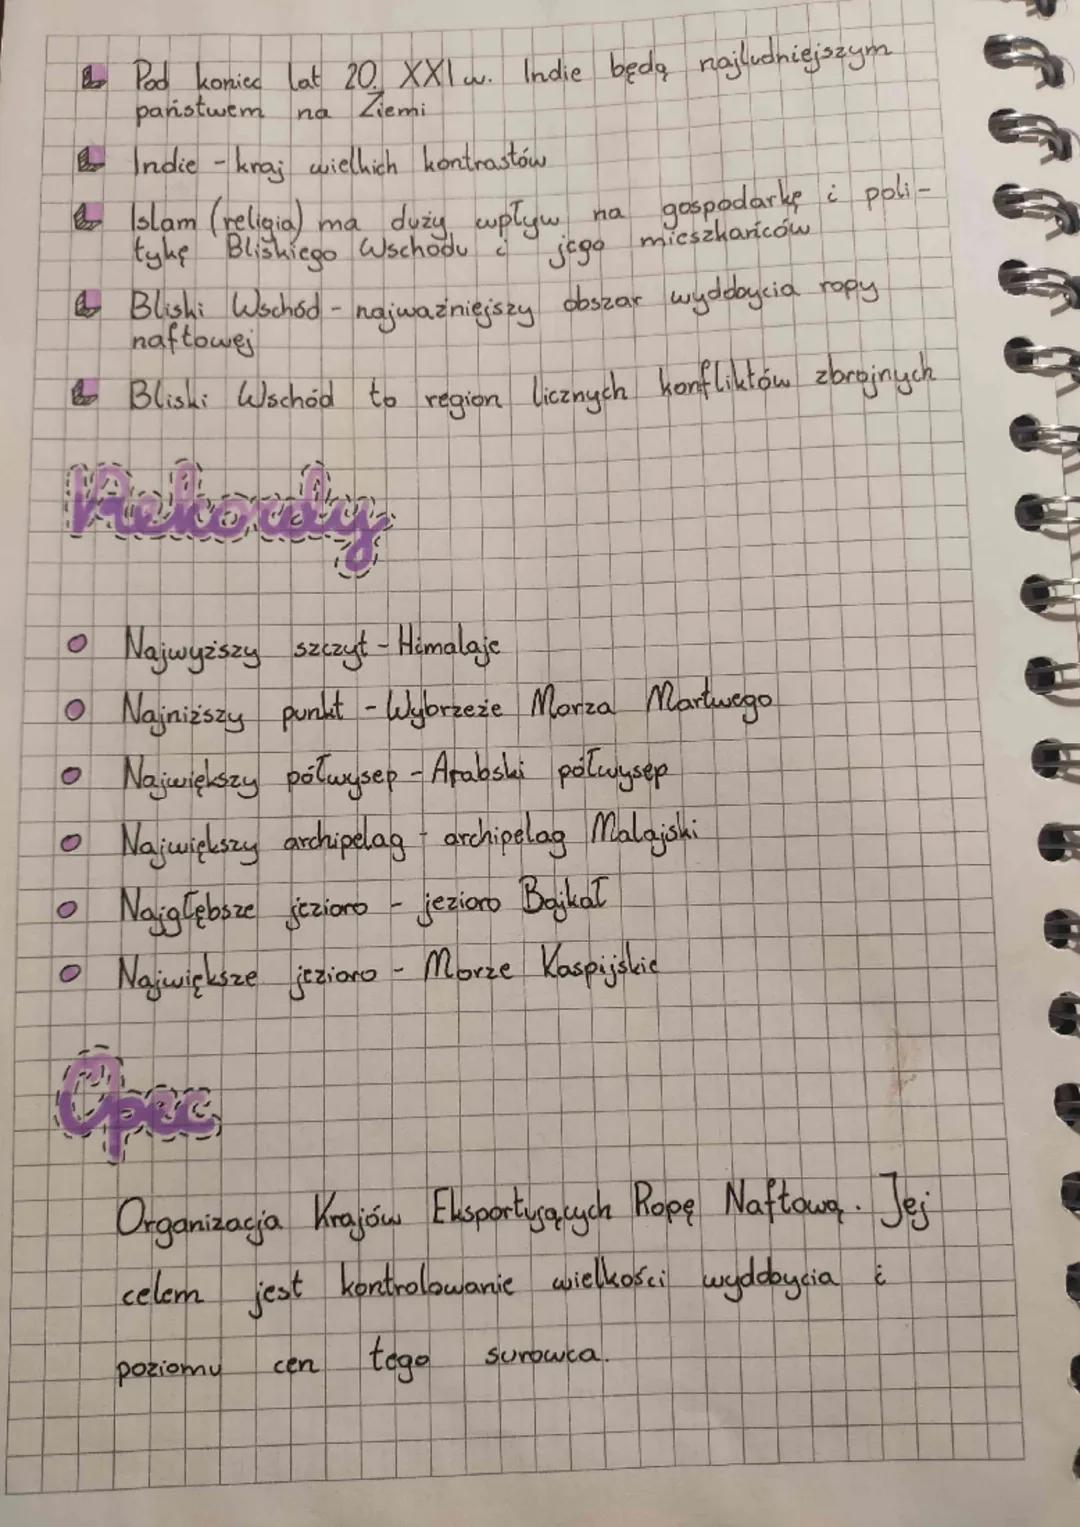 Pod koniec lat 20. XXI w. Indie będą najludniejszym
państwem na Ziemi
Indie - kraj wielkich kontrastów
Islam (religia) ma duży wpływ na gospodarkę i poli-
tykę Bliskiego Wschodu i jego mieszkańców
Bliski Wschód - najważniejszy obszar wydobycia ropy
naftowej
Bliski Wschód to region licznych konfliktów zbrojnych
Rekordy
Najwyższy szczyt - Himalaje
Najniższy punkt - Wybrzeże Morza Martwego
Największy półwysep - Arabski półwysep
Największy archipelag - archipelag Malajski
Najgłębsze jezioro - jezioro Bajkał
Największe jezioro - Morze Kaspijskie
Opec
Organizacja Krajów Eksportujących Ropę Naftową. Jej
celem jest kontrolowanie wielkości wydobycia i
poziomu cen tego surowca.